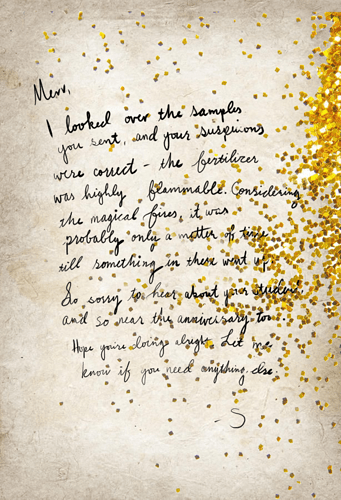 Merv,
I looked over the samples
you sent, and your suspicions
were correct - the fertilizer
was highly flammable. Considering
the magical fires, it was
probably only a matter of time
till something in there went up.
So sorry to hear about your student,
and so near the anniversary too...
Hope you're doing alright. Let me
know if you need anything else.
-S